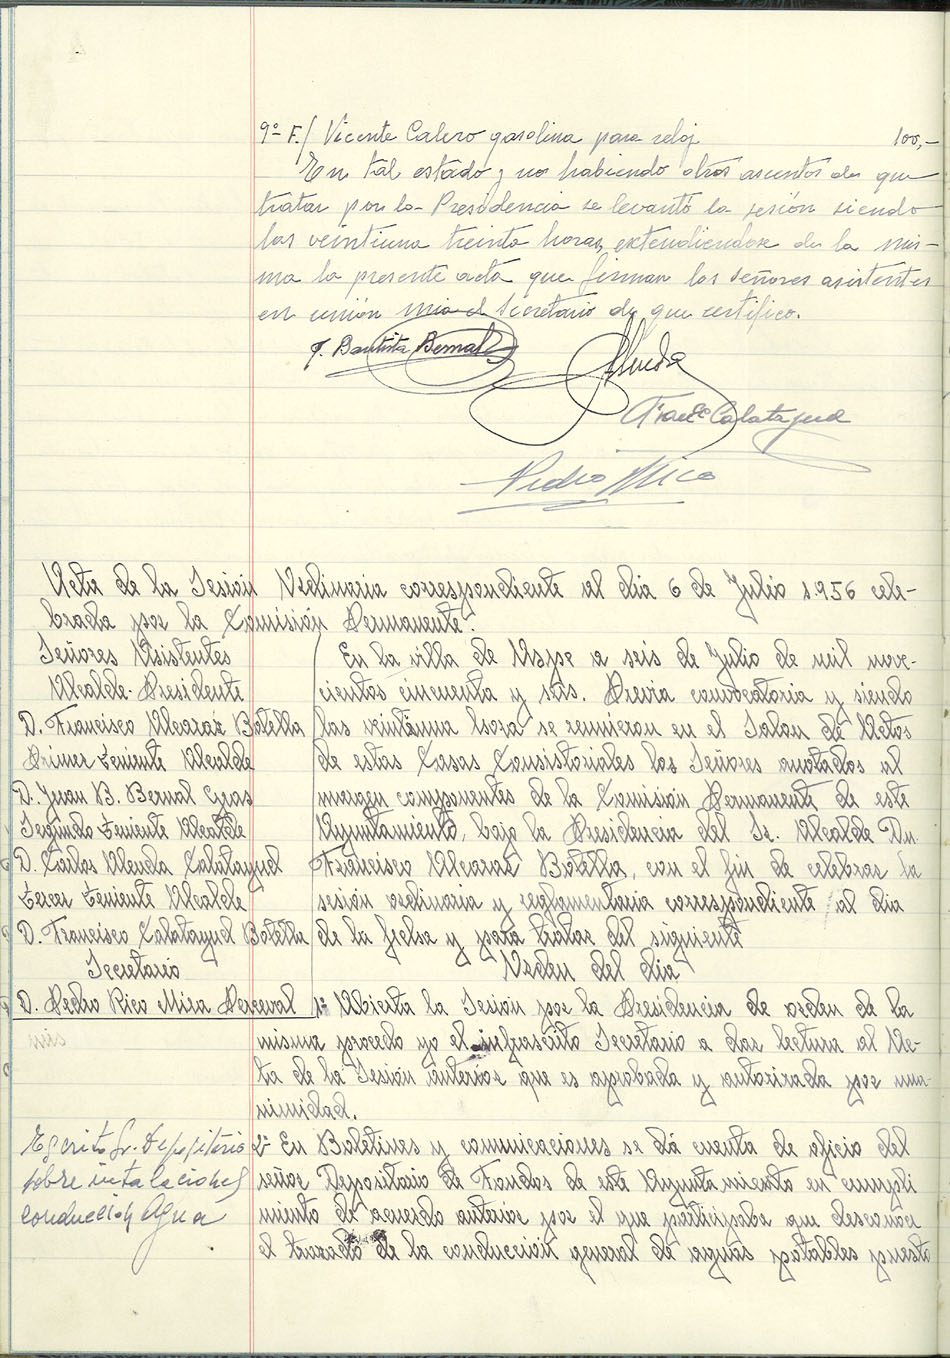 9º F./ Vicente Calero gasolina para reloj 100,-
En tal estado y no habiendo otros asuntos de que
tratar por la Presidencia se levantó la sesión siendo
las veintiuna treinta horas, extendiendose de la mis-
ma la presente acta que firman los señores asistentes
en unión mia el Secretario de que certifico.
J. Bautista Bernal
Alueda
Franco Calatayud
Pedro Rico
Acta de la Sesión Ordinaria correspondiente al dia 6 de Julio 1.956 cele-
brada por la Comisión Permanente.
Señores Asistentes
Alcalde-Presidente
D. Francisco Alcaraz Botella
Primer Teniente Alcalde
D. Juan B. Bernal Cras
Segundo Teniente Alcalde
D. Carlos Alueda Calatayud
Tercer Teniente Alcalde
D. Francisco Calatayud Botella
Secretario
D. Pedro Rico Mira Perceval
En la villa de Aspe a seis de Julio de mil nove-
cientos cincuenta y seis. Previa convocatoria y siendo
las veintiuna hora se reunieron en el Salon de Actos
de estas Casas Consistoriales los Señores anotados al
margen componentes de la Comisión Permanente de este
Ayuntamiento, bajo la Presidencia del Sr. Alcalde Dn.
Francisco Alcaraz Botella, con el fin de celebrar la
sesión ordinaria y reglamentaria correspondiente al dia
de la fecha y para tratar del siguiente
Orden del dia
1º Abierta la Sesión por la Presidencia de orden de la
misma procedo yo el infrascrito Secretario a dar lectura al Ac-
ta de la Sesion anterior que es aprobada y autorizada por una-
nimidad.
Escrito Sr. Depositario
sobre instalación
conducción Agua
2º En Boletines y comunicaciones se dá cuenta de oficio del
señor Depositario de Fondos de este Ayuntamiento en cumpli
miento de acuerdo anterior por el que participaba que desconoce
el trazado de la conducción general de aguas potables puesto